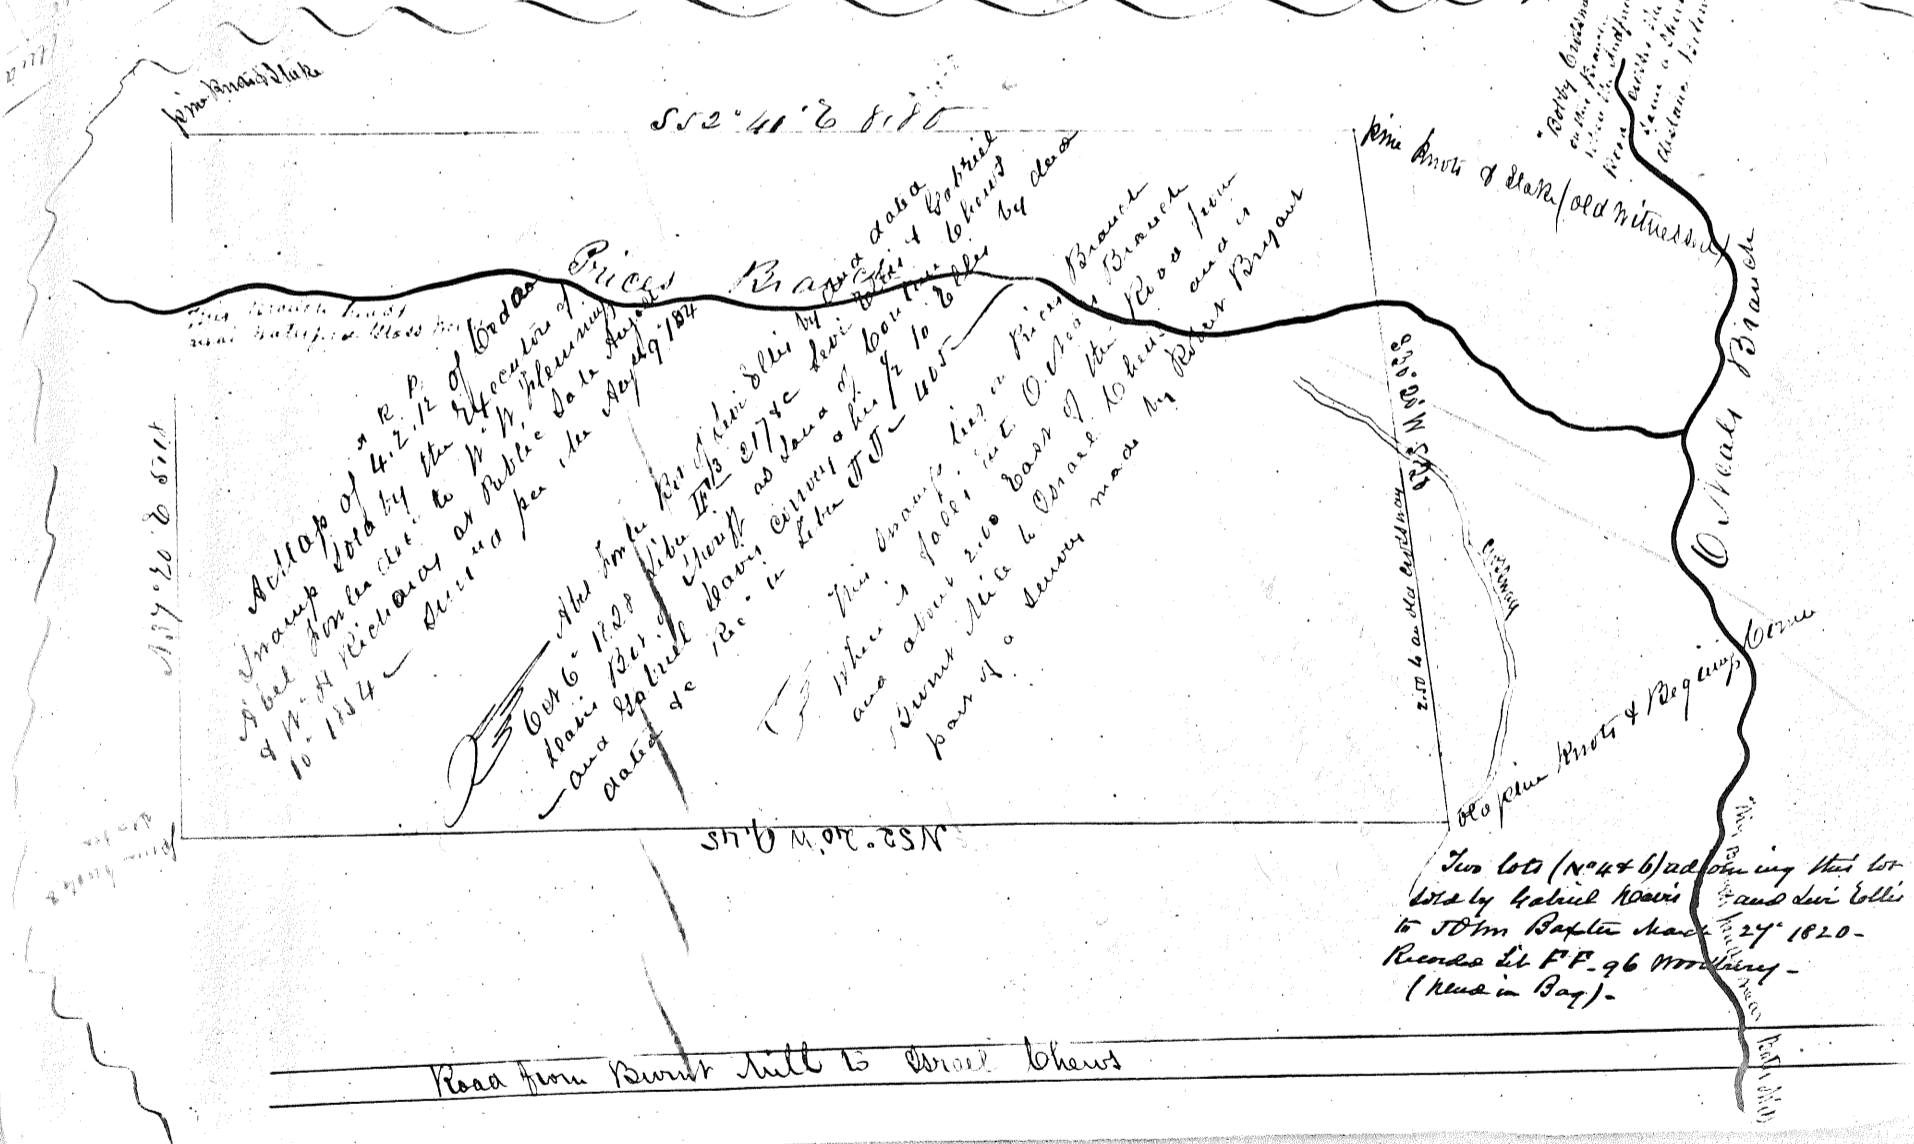 pine Knots & Stake
S 52° 41' E 8.80
pine Knots & Stake (old Witnesses)
"Bobby
on the Branch
Road crosses the
same a
distance below
Prices Branch
This Branch heads
near
O Neals Branch
A Map of 4.2.12 of Cedar
Swamp Sold by the Executors of
Abel Fowler decd to W. W. Fleming
& W. H. Richards at Public Sale August
10th 1854 —
Surveyed per me Aug 9th 184
Abel Fowler Bot of Levi Ellis by deed dated
Oct 6th 1828 Liber 217 &c Levi Ellis & Gabriel
Davis Bot of Sheriff as Land of Chews
and Gabriel Davis convey a his 1/2 to Ellis by deed
dated &c Rec. in Liber J J — 405 —
This Swamp lies on Prices Branch
where it falls into O.Neals Branch
and about 2.00 East of the Road from
Burnt Mill to Israel Chews and is
part of a survey made by Robert Bryant
N 37° 20' E 5.18
2.50 to an old crossway
Crossway
old pine Knots & Begining Corner
N 52° 20' W 9.45
pine knots &
Two lots (No 4 & 6) adjoining this lot
sold by Gabriel Davis and Levi Ellis
to John Baxter March 27th 1820 -
Recorded Lib F F - 96 Woodbury -
(Deed in Bag) -
Road from Burnt Mill to Israel Chews